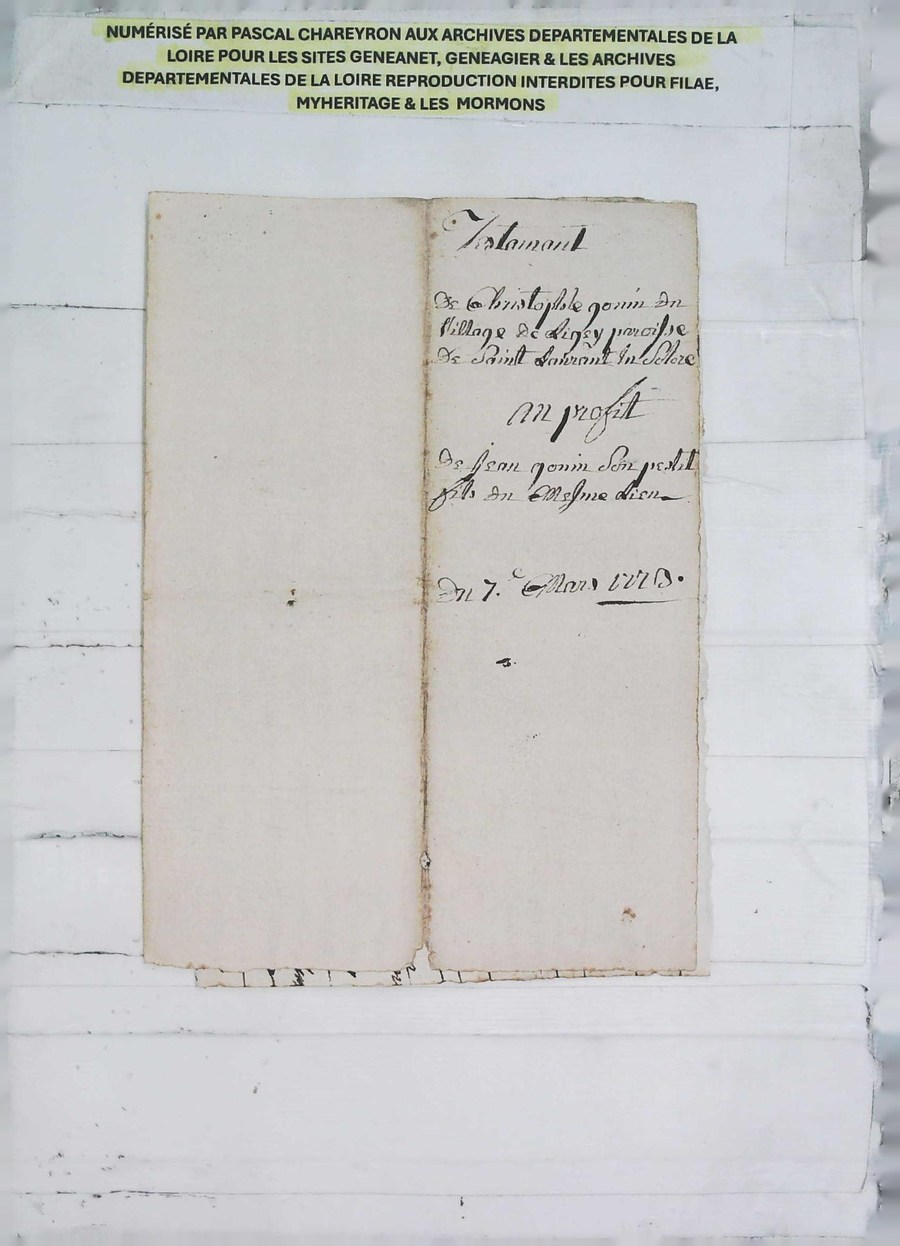 NUMÉRISÉ PAR PASCAL CHAREYRON AUX ARCHIVES DEPARTEMENTALES DE LA
LOIRE POUR LES SITES GENEANET, GENEAGIER & LES ARCHIVES
DEPARTEMENTALES DE LA LOIRE REPRODUCTION INTERDITES POUR FILAE,
MYHERITAGE & LES MORMONS
Testamant
De Christophle gonin du
Village de Ligey paroisse
De Saint Laurant In Solore
au profit
De Jean gonin Son petit
fils du Mesme Lieu
Du 7.e Mars